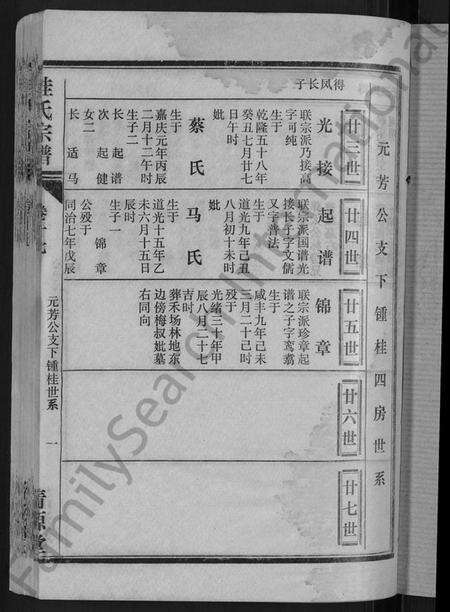 元芳公支下锺桂四房世系
得凤长子
廿三世
光接
联宗派乃接高
字可纯
生于
乾隆五十八年
癸丑七月廿七
日午时
妣
蔡氏
生于
嘉庆元年丙辰
二月十二午时
生子二
长起谱
次起健
女二
长适马
廿四世
起谱
联宗派国谱光
接长子字文儒
又字普法
生于
道光九年己丑
八月初十未时
妣
马氏
生于
道光十五年乙
未六月十五日
辰时
生子一
锦章
公殁于
同治七年戊辰
廿五世
锦章
联宗派珍章起
谱之子字鸾翥
生于
咸丰九年己未
三月二十己时
殁于
光绪三十年甲
辰八月二十七
吉时
葬禾场林地东
边傍梅叔妣墓
右同向
廿六世
廿七世
桂氏宗谱
卷十七
元芳公支下锺桂世系
一
FamilySearch International